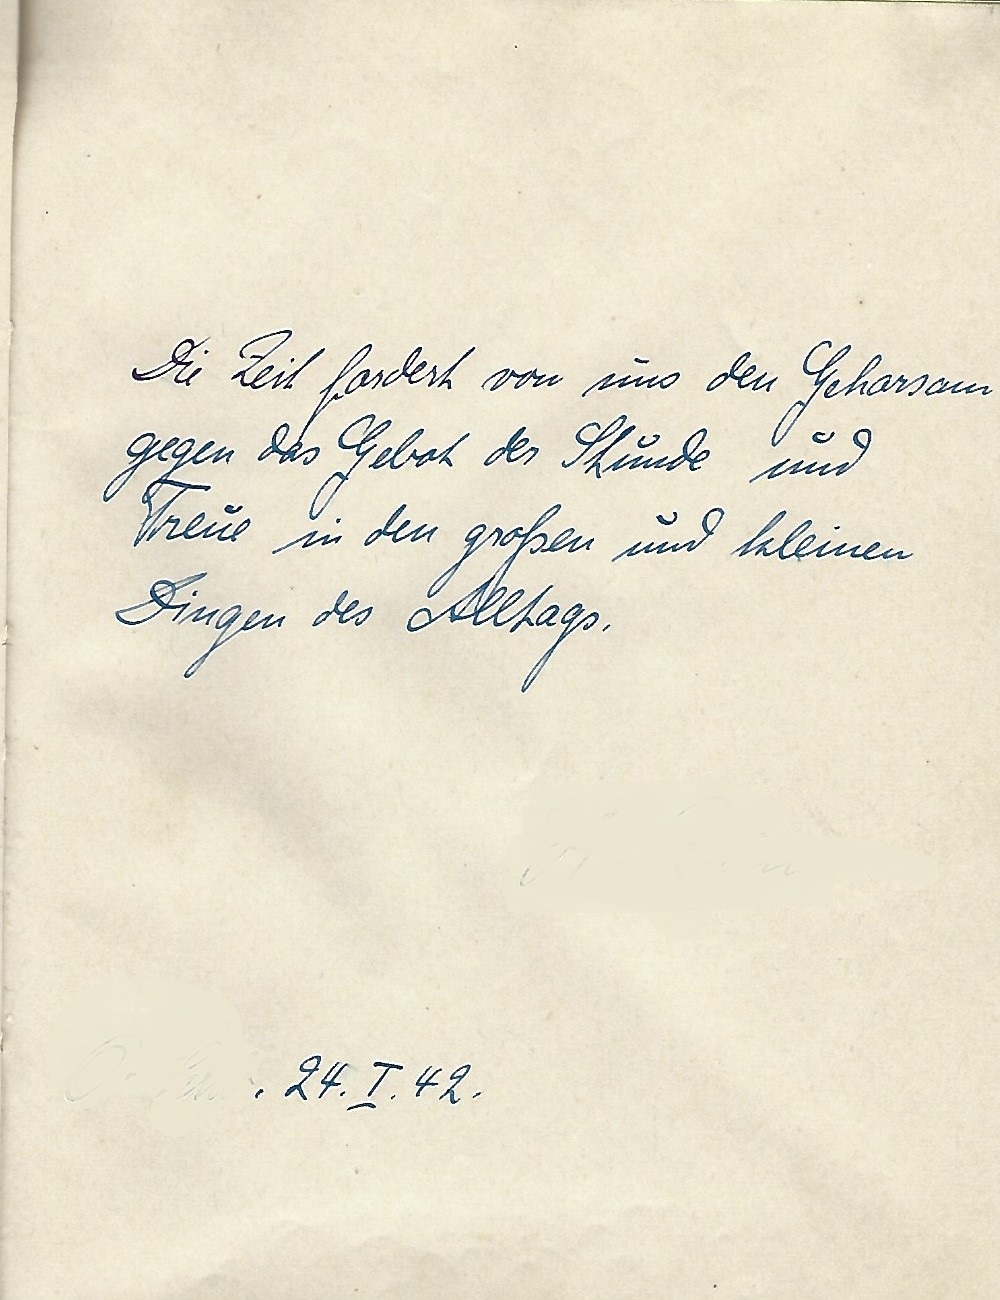 Die Zeit fordert von uns den Gehorsam
gegen das Gebot der Stunde und
Treue in den großen und kleinen
Dingen des Alltags.
. 24. I. 42.